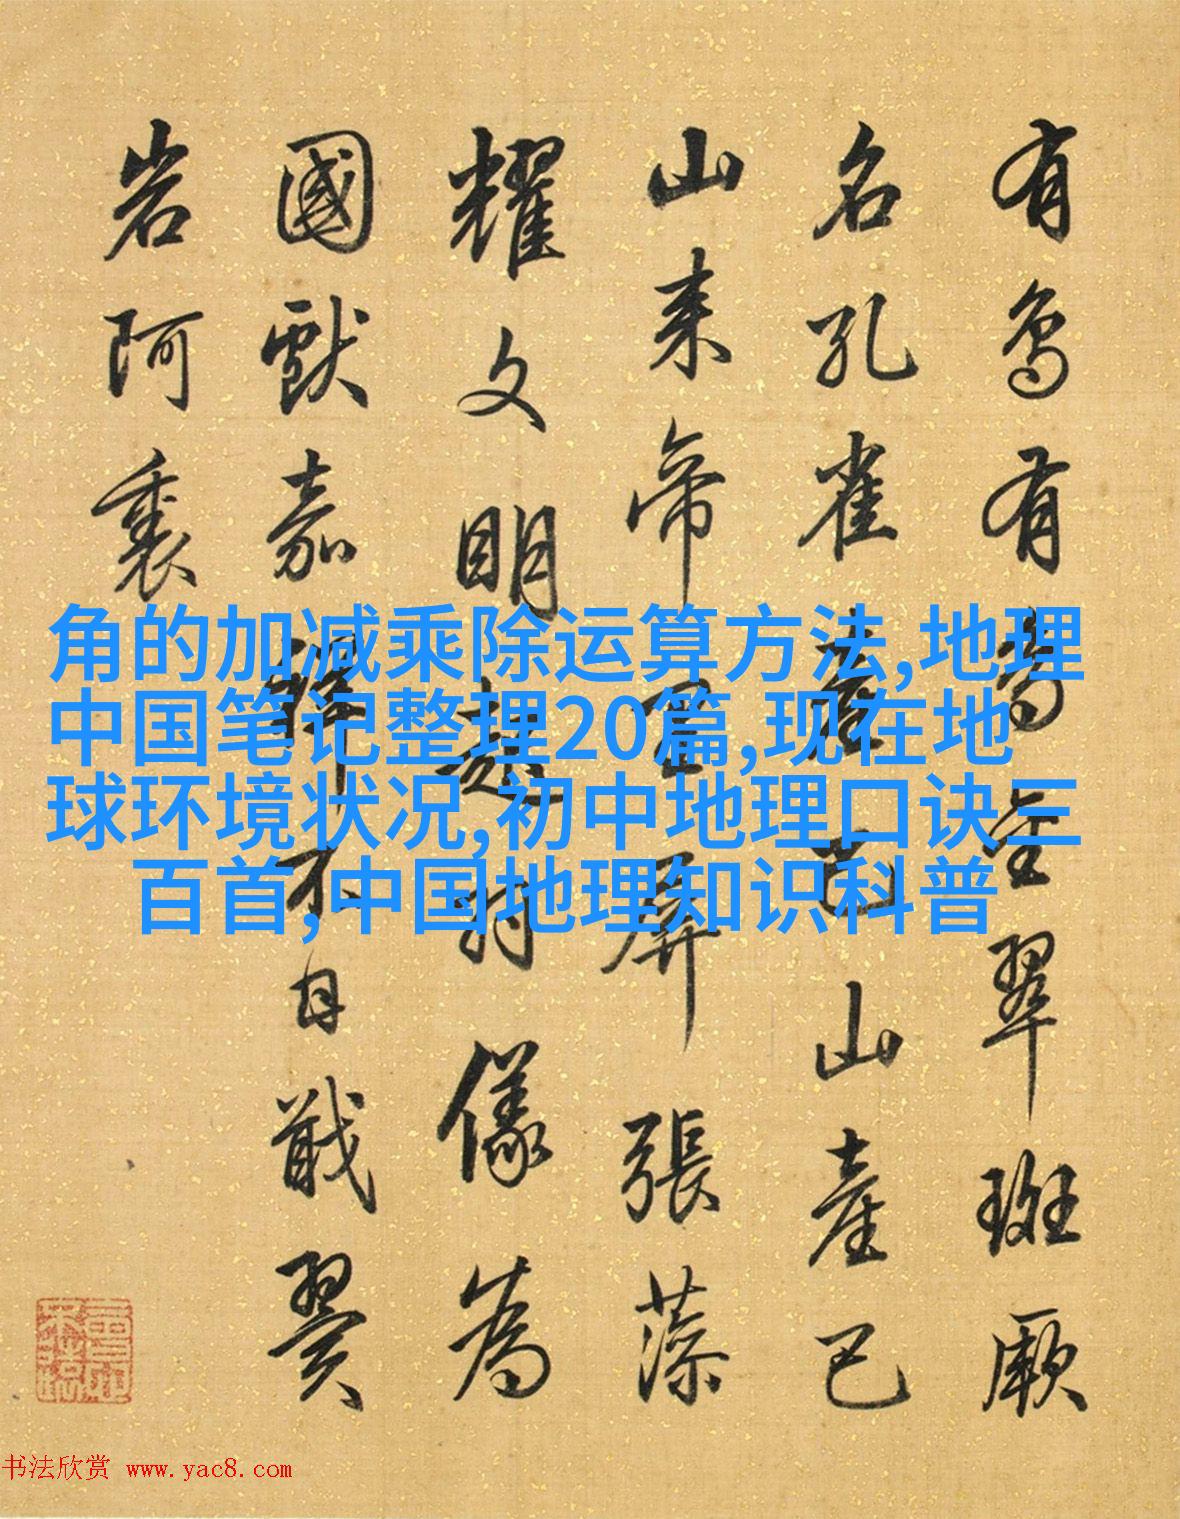 有鸟有鸟金翠斑厥
名孔雀
山產巴
山来帝
屏張藻
耀文明
起対儀為
國獻嘉
不自戢翼
岩阿裏
角的加减乘除运算方法,地理
中国笔记整理20篇,现在地
球环境状况,初中地理口诀三
百首,中国地理知识科普
书法欣赏 www.yac8.com